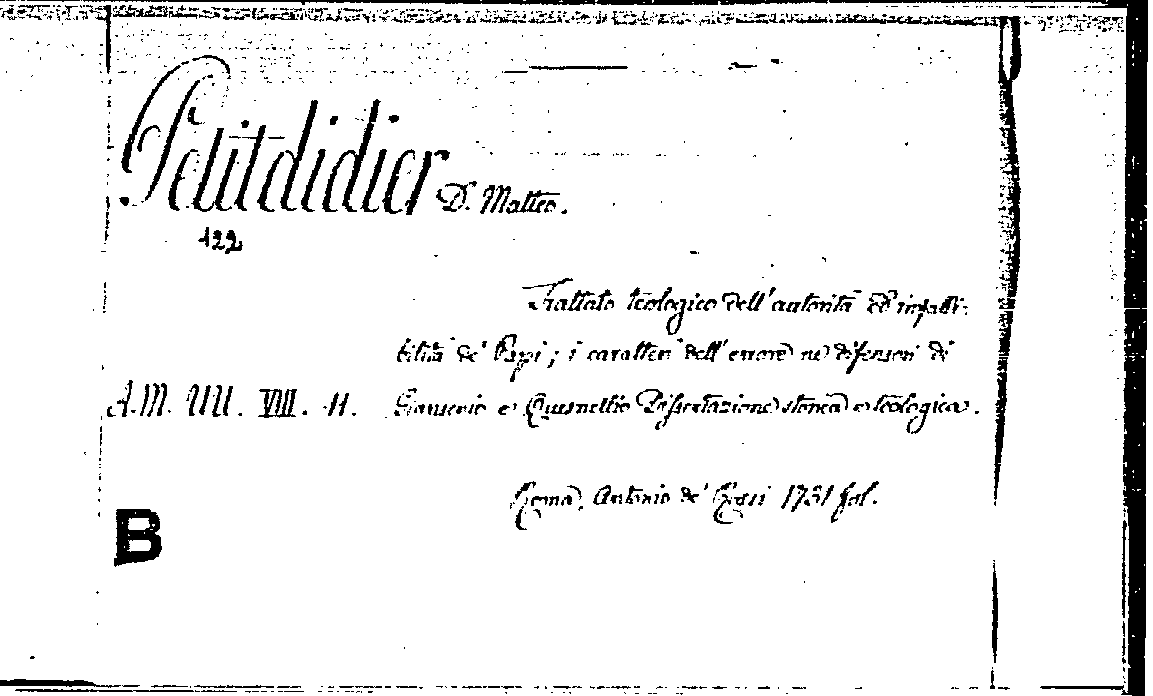 Petitdidier D. Matteo.
122
Trattato teologico dell'autorità ed infalli-
bilità de' Papi; i caratteri dell'errore ne' difensori di
A.M. UU. VIII. 11. Giansenio e Quesnellio Dissertazione storica e teologica.
Roma, Antonio de' Rossi 1731 fol.
B